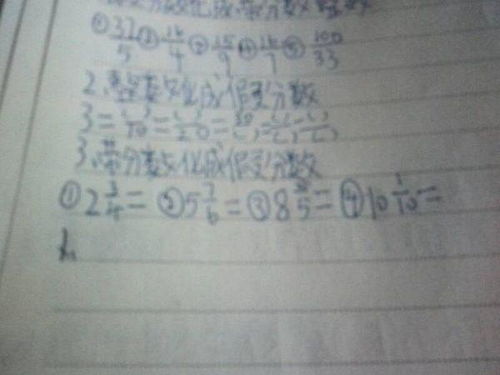 ①32/5 ②15/4 ③15/9 ④15/7 ⑤100/33
2.整数化成假分数
3=( )/10=( )/20=30/( )=( )/( )=( )/( )
3.带分数化成假分数
①2 3/4= ②5 7/6= ③8 /5= ④10 1/10=